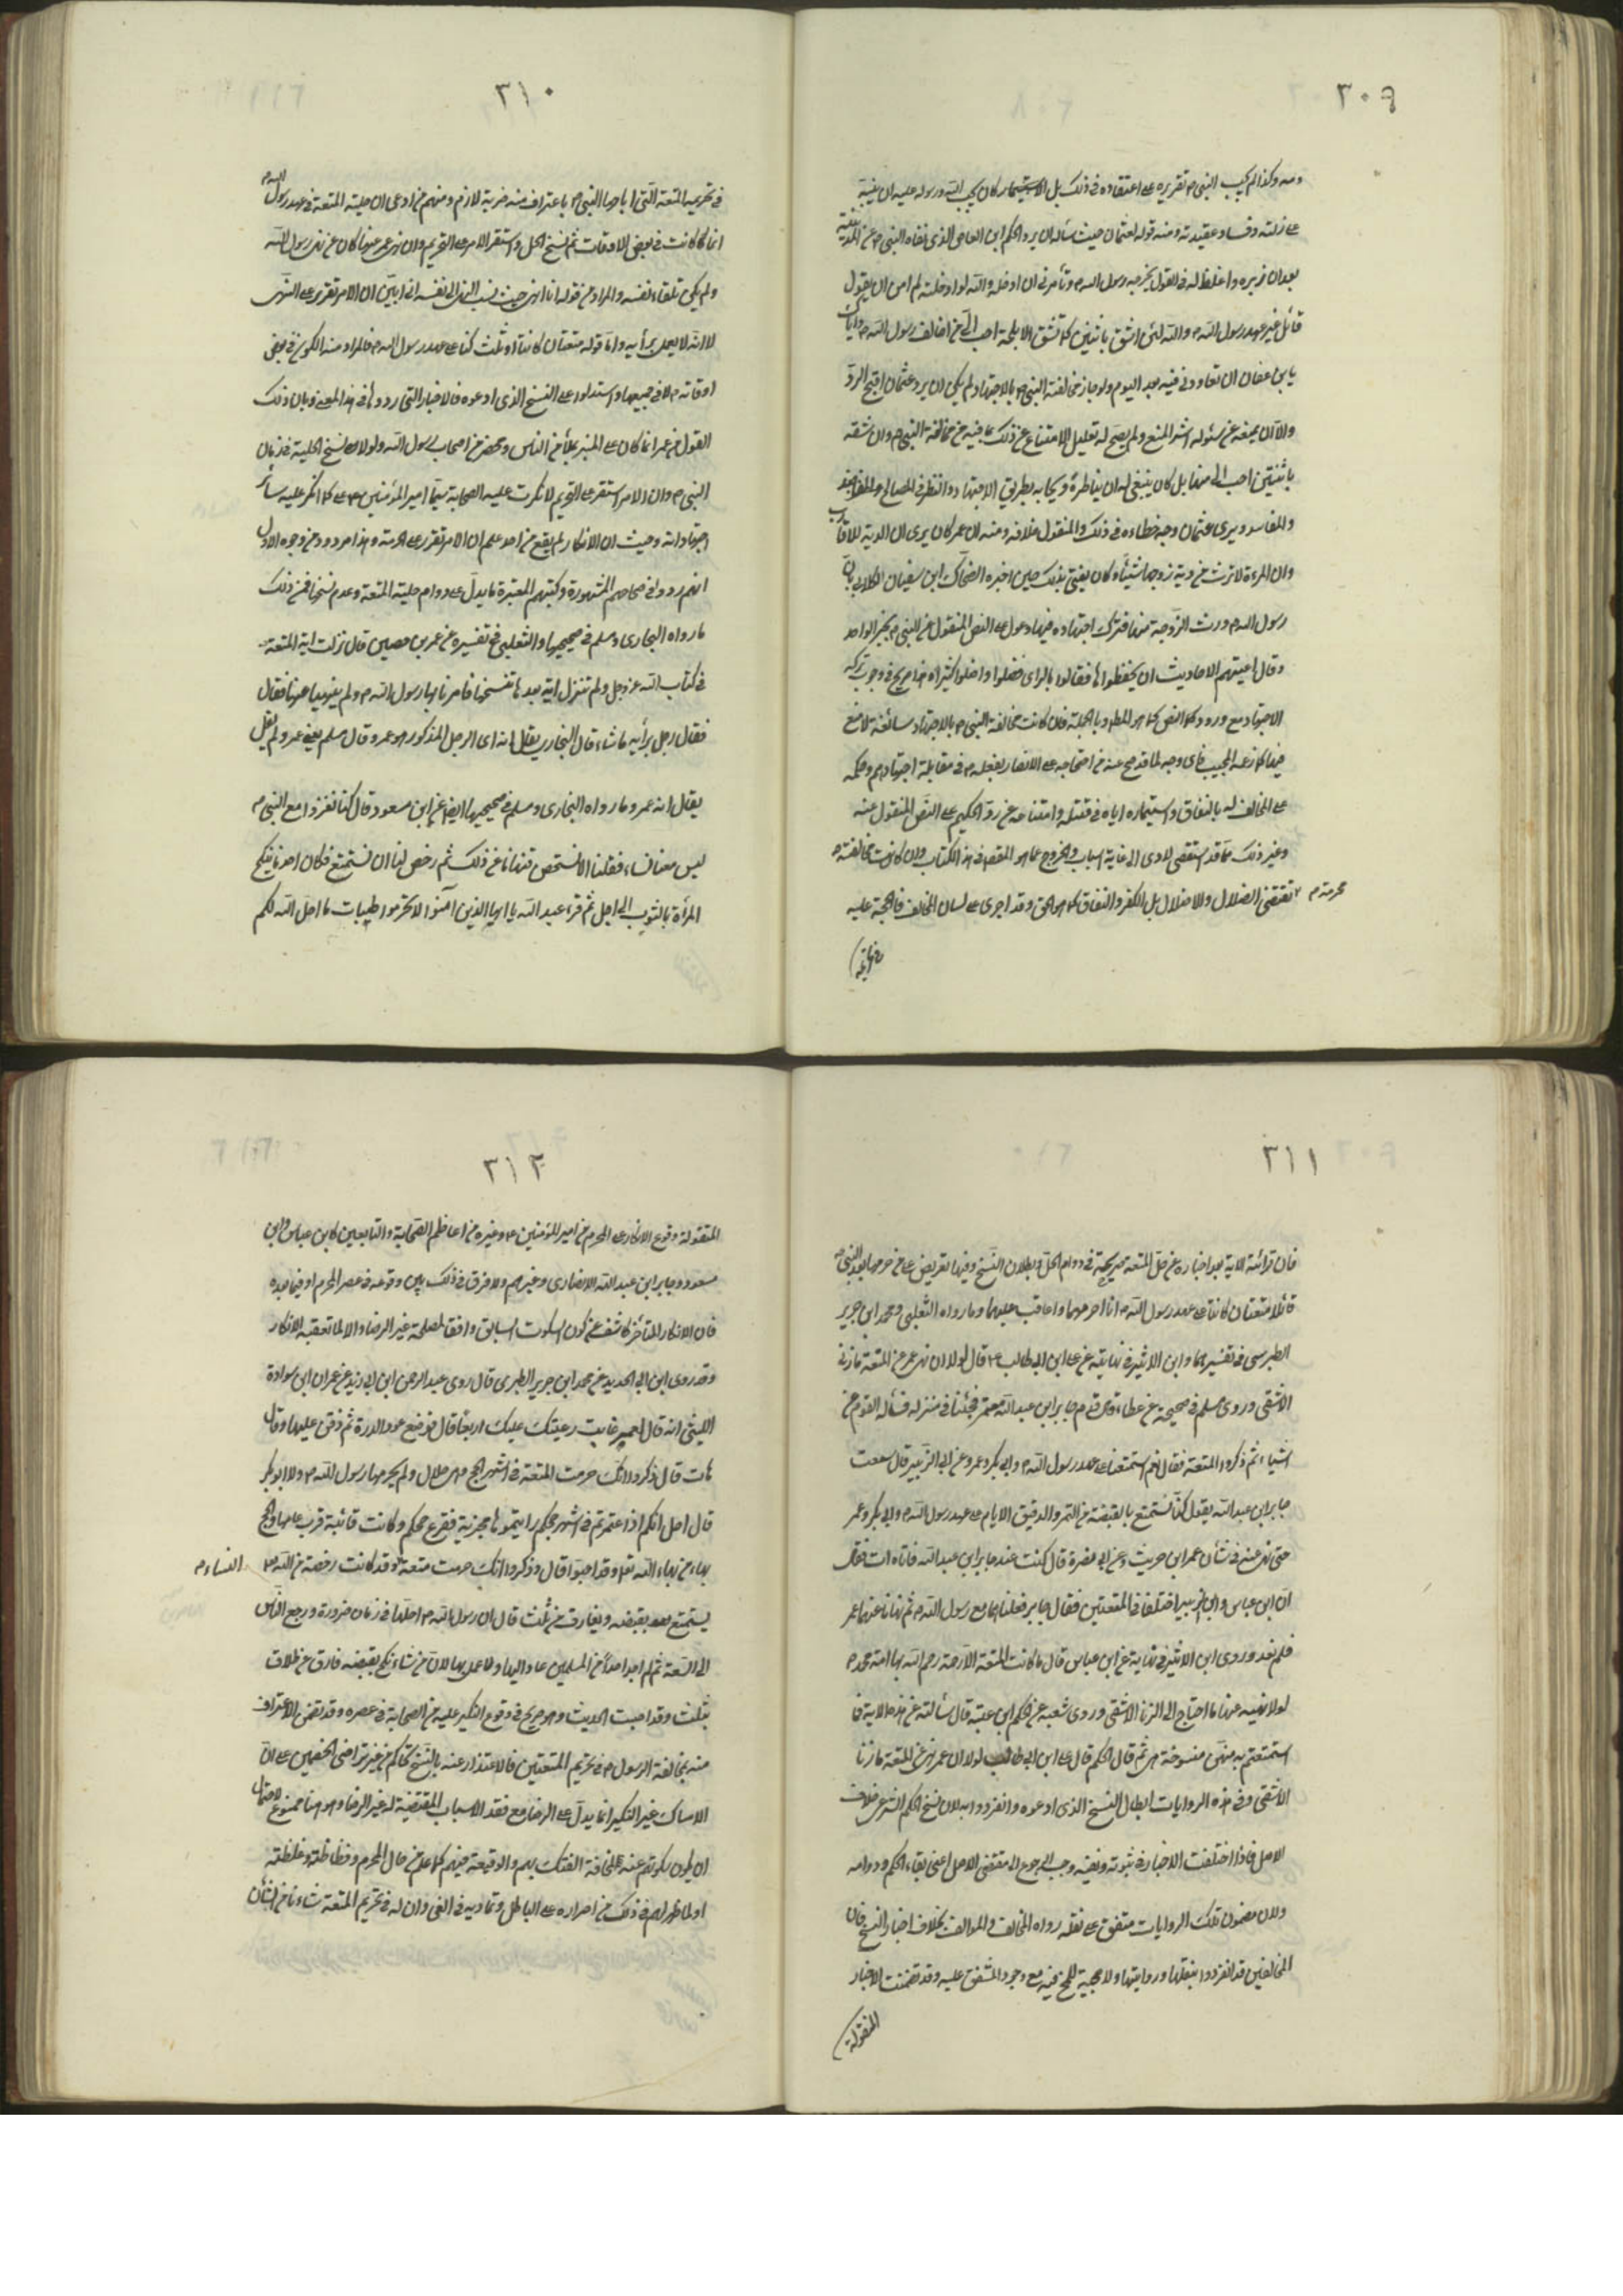 ٣٠٩
دمه وكذا لم يجب النبي ص تقريره على اعتقاده في ذلك بل الاستيمار كان يجب الله ورسوله عليه ان ينبه
على زلته وفساد عقيدته ومنه قوله لعثمان حيث سأله ان يرد الحكم ابن العاص الذي نفاه النبي ص عن المدينة
بعد ان زبره واغلظ له في القول يخرجه رسول الله ص وتأمرني ان ادخله والله لو ادخلته لم امن ان يقول
قائل غير عهد رسول الله ص والله لئن اشق باثنين كما تشق الابلمة احب الى من ان اخالف رسول الله ص واياك
يابن عفان ان تعاودني فيه بعد اليوم ولو جاز مخالفة النبي ص بالاجتهاد لم يكن ان يرد عثمان اقبح الرد
والا ان يمنعه عن سئوله اشد المنع ولم يصح له تعليل الامتناع عن ذلك بما فيه من مخالفة النبي ص وان شقه
باثنتين احب الى منها بل كان ينبغي له ان يناظره ويحاجه بطريق الاجتهاد والنظر في المصالح
والمفاسد ويرى عثمان وجه خطاءه في ذلك والمنقول خلافه ومنه ان عمر كان يرى ان الدية للاقارب
وان المرءة لا ترث من دية زوجها شيئا وكان يفتى بذلك حين اخبره الضحاك ابن سفيان الكلابي بان
رسول الله ص ورث الزوجة منها فترك اجتهاده فيها وعول على النص المنقول عن النبي ص بخبر الواحد
وقال اعيتهم الاحاديث ان يحفظوها فقالوا بالراى فضلوا واضلوا كثيرا وهذا صريح في وجوب تركه
الاجتهاد مع ورود النص كما هو المطلوب وبالجملة فلان كانت مخالفة النبي ص بالاجتهاد سائغة لا منع
فيها كما زعمه المجيب فاى وجه لما قدح عنه من احتجاجه على الانصار بفعله ص في مقابلة اجتهادهم وحكمه
على المخالف له بالنفاق واستيماره اياه في قتله وامتناعه عن رد الحكم على النص المنقول عنه
وغير ذلك مما قد استقصى لادى الى غاية اسباب والخروج عما هو المقصد في هذا الكتاب وان كانت مخالفته ص
محرمة م تقتضي الضلال والاضلال بل الكفر والنفاق كما هو الحق وقد اجرى على لسان المخالف فالحجة عليه
٣١٠
في تحريمه المتعة التي اباحها النبي ص باعتراف منه ضربة لازم ومنهم من ادعى ان حلية المتعة في عهد رسول الله ص
انما كانت في بعض الاوقات ثم نسخ الحل واستقر الامر على التحريم وان نهى عمر عنها كان عن نهى رسول الله
ولم يكن تلقاء نفسه والمراد من قوله انا انهى حيث نسب النهى الى نفسه انى ابين ان الامر تقرر على النهى
لا انه لا يعمل برأيه واما قوله متعتان كانتا او ثلث كن على عهد رسول الله ص فالمراد منه الكون في بعض
اوقاته ص لا في جميعها واستدلوا على النسخ الذى ادعوه فالاخبار التى رووها في هذا المعنى وبان ذلك
القول من عمر انما كان على المنبر بملأ من الناس ومحضر من اصحاب رسول الله ولولا نسخ الحلية في زمان
النبي ص وان الامر استقر على التحريم لانكرت عليه الصحابة سيما امير المؤمنين ع كما انكر عليه سائر
اجتهاداته وحيث ان الانكار لم يقع من احد علم ان الامر تقرر على الحرمة وهذا مردود من وجوه الاول
انهم رووا في صحاحهم المشهورة وكتبهم المعتبرة ما يدل على دوام حلية المتعة وعدم نسخها فمن ذلك
ما رواه البخارى ومسلم في صحيحيهما والثعلبى في تفسيره عن عمر بن حصين قال نزلت اية المتعة
في كتاب الله عز وجل ولم تنزل اية بعدها تنسخها فامرنا بها رسول الله ص ولم ينهنا عنها فقال
فقال رجل برأيه ما شاء قال البخارى يقال انه اى الرجل المذكور هو عمر وقال مسلم يعنى عمر ولم يقل
يقال انه عمر وما رواه البخارى ومسلم في صحيحيهما ايضا عن ابن مسعود قال كنا نغزوا مع النبي ص
ليس معنا نساء فقلنا الا نستخص فنهانا عن ذلك ثم رخص لنا ان نستمتع فكان احدنا ينكح
المرأة بالثوب الى اجل ثم قرء عبد الله يا ايها الذين آمنوا لا تحرموا طيبات ما احل الله لكم
٣١١
فان قرائته الاية بعد اخباره عن حل المتعة صريحة في دوام الحل وبطلان النسخ وفيها تعريض على من حرمها بعد النبي ص
قائلا متعتان كانتا على عهد رسول الله ص انا احرمهما واعاقب عليهما وما رواه الثعلبى ومحمد ابن جرير
الطبرسى في تفسيرهما وابن الاثير في نهايته عن على ابن ابى طالب ع قال لولا ان نهى عمر عن المتعة ما زنى
الا شقى وروى مسلم في صحيحه عن عطاء قال قدم جابر ابن عبد الله معتمرا فجئنا في منزله فسأله القوم عن
اشياء ثم ذكروا المتعة فقال نعم استمتعنا على عهد رسول الله ص وابى بكر وعمر وعن ابى الزبير قال سمعت
جابر ابن عبد الله يقول كنا نستمتع بالقبضة من التمر والدقيق الايام على عهد رسول الله ص وابى بكر وعمر
حتى نهى عنه في شأن عمر ابن حريث وعن ابى نضرة قال كنت عند جابر ابن عبد الله فاتاه ات فقال
ان ابن عباس وابن الزبير اختلفا في المتعتين فقال جابر فعلناهما مع رسول الله ص ثم نهانا عنهما عمر
فلم نعد وروى ابن الاثير في نهايته عن ابن عباس قال ما كانت المتعة الا رحمة رحم الله بها امة محمد ص
لولا نهيه عنها ما احتاج الى الزنا الا شقى وروى شعبة عن الحكم ابن عتبة قال سألته عن هذه الاية فما
استمتعتم به منهن منسوخة هى ثم قال الحكم قال على ابن ابى طالب لولا ان عمر نهى عن المتعة ما زنا
الا شقى وفي هذه الروايات ابطال النسخ الذى ادعوه وانفردوا به لان نسخ الحكم الشرعى خلاف
الاصل فاذا اختلفت الاخبار في ثبوته ونفيه وجب الرجوع الى مقتضى الاصل اعنى بقاء الحكم ودوامه
ولان مضمون تلك الروايات متفق على نقله رواه المخالف والموالف بخلاف اخبار النسخ فان
المخالفين قد انفردوا بنقلها وروايتها ولا حجية للمختلف فيه مع وجود المتفق عليه وقد تضمنت الاخبار
المنقولة
٣١٢
المنقولة وقوع الانكار على المحرم من امير المؤمنين ع وغيره من اعاظم الصحابة والتابعين كابن عباس وابن
مسعود وجابر ابن عبد الله الانصارى وغيرهم ولا فرق في ذلك بين وقوعه في عصر المحرم او فيما بعده
فان الانكار المتأخر كاشف عن كون السكوت السابق واقعا لمصلحة غير الرضا والا لما تعقبه الانكار
وقد روى ابن ابى الحديد عن محمد ابن جرير الطبرى قال روى عبد الرحمن ابن ابى زيد عن عمران ابن سوادة
الليثى انه قال لعمر عابت رعيتك عليك اربعا قال فوضع عود الدرة ثم ذقن عليها وقال
هات قال ذكروا انك حرمت المتعة في اشهر الحج وهى حلال ولم يحرمها رسول الله ص ولا ابو بكر
قال اجل انكم اذا اعتمرتم في اشهر حجكم رايتموها مجزية فقرع حجكم وكانت قائبة قوب عامها والحج
بهاء من بهاء الله تع وقد اصبت قال وذكروا انك حرمت متعة النساء م وقد كانت رخصة من الله
يستمتع بقبضه ويفارق من ثلث قال ان رسول الله ص احلها في زمان ضرورة ورجع الناس
الى السعة ثم لم اجد احدا من المسلمين عاد اليها ولا عمل بها لان من شاء نكح بقبضه فارق عن طلاق
بثلث وقد اصبت الحديث وهو صريح في وقوع النكير عليه من الصحابة في عصره وقد تضمن الاعتراف
منه بمخالفة الرسول ص في تحريم المتعتين فالاعتذار عنه بالنسخ تحاكم من غير تراضى الخصمين على ان
الامساك عن النكير انما يدل على الرضا مع فقد الاسباب المقتضية له غير الرضا وهو هنا ممنوع لاحتمال
ان يكون سكوتهم عنه لمخافة الفتك بهم والوقيعة فيهم كما علم من حال المحرم وفظاظته وغلظته
او لما ظهر لهم في ذلك من اصراره على الباطل وتماديه في الغى وان له في تحريم المتعة شاءنا من الشأن